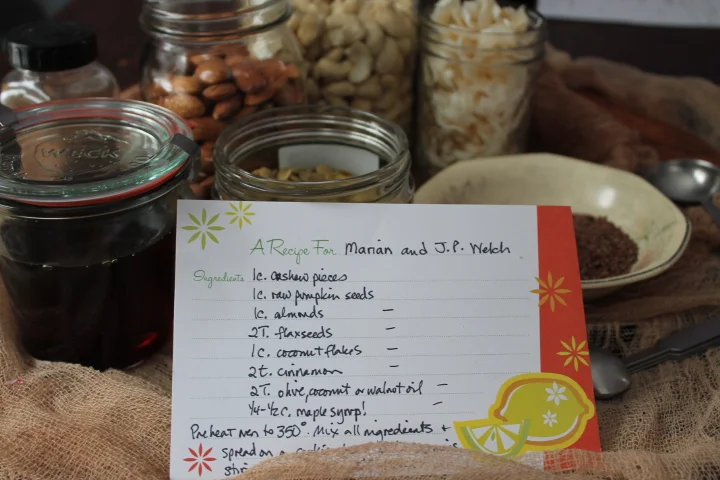 WECK
A Recipe For Marian and J.P. Welch
Ingredients 1c. cashew pieces
1c. raw pumpkin seeds
1c. almonds –
2T. flaxseeds –
1c. coconut flakes –
2t. cinnamon –
2T. olive, coconut or walnut oil –
1/4-1/2c. maple syrup! –
Preheat oven to 350°. Mix all ingredients +
spread on a